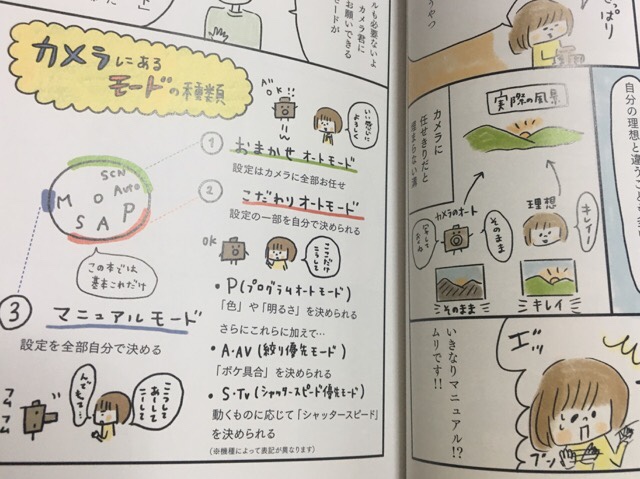 ルも必要ないよ
カメラ君に
お願いできる
カメラにある
モードの種類
OK!!
いい感じに
よろしく
① おまかせオートモード
設定はカメラに全部お任せ
② こだわりオートモード
設定の一部を自分で決められる
SCN
Auto
M O P
S A
この本では
基本これだけ
OK
ここだけ
こうして
・P(プログラムオート)
「色」や「明るさ」を決められる
さらにこれらに加えて…
・A・AV(絞り優先モード)
「ボケ具合」を決められる
・S・Tv(シャッタースピード優先モード)
動くものに応じて「シャッタースピード」
を決められる
(※機種によって表記が異なります)
③ マニュアルモード
設定を全部自分で決める
フムフム
んでもって…
ここうして
あーして
こーして
っぱり
うやつ
自分の理想と違うこと
実際の風景
カメラに
任せきりだと
埋まらない溝
カメラのオート
そのまま
理想
キレイ!
そのまま
キレイ
エッ
いきなりマニュアル!?
ムリです!!
ブン